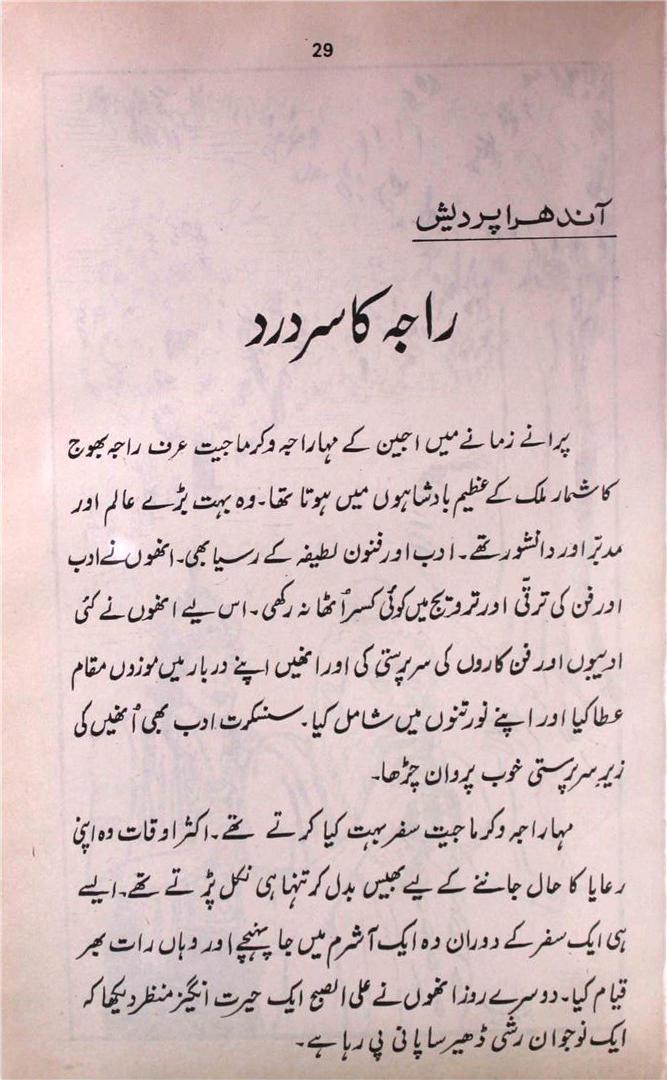 29
آندھرا پردیش
راجہ کا سر درد
پرانے زمانے میں اجین کے مہاراجہ وکرماجیت عرف راجہ بھوج
کا شمار ملک کے عظیم بادشاہوں میں ہوتا تھا۔ وہ بہت بڑے عالم اور
مدبّر اور دانشور تھے۔ ادب اور فنون لطیفہ کے رسیا بھی۔ انھوں نے ادب
اور فن کی ترقّی اور ترویج میں کوئی کسر اُٹھا نہ رکھی۔ اس لیے انھوں نے کئی
ادیبوں اور فن کاروں کی سرپرستی کی اور انھیں اپنے دربار میں موزوں مقام
عطا کیا اور اپنے نورتنوں میں شامل کیا۔ سنسکرت ادب بھی اُنھیں کی
زیرِ سرپرستی خوب پروان چڑھا۔
مہاراجہ وکرماجیت سفر بہت کیا کرتے تھے۔ اکثر اوقات وہ اپنی
رعایا کا حال جاننے کے لیے بھیس بدل کر تنہا ہی نکل پڑتے تھے۔ ایسے
ہی ایک سفر کے دوران وہ ایک آشرم میں جا پہنچے اور وہاں رات بھر
قیام کیا۔ دوسرے روز انھوں نے علی الصبح ایک حیرت انگیز منظر دیکھا کہ
ایک نوجوان رشی ڈھیر سا پانی پی رہا ہے۔